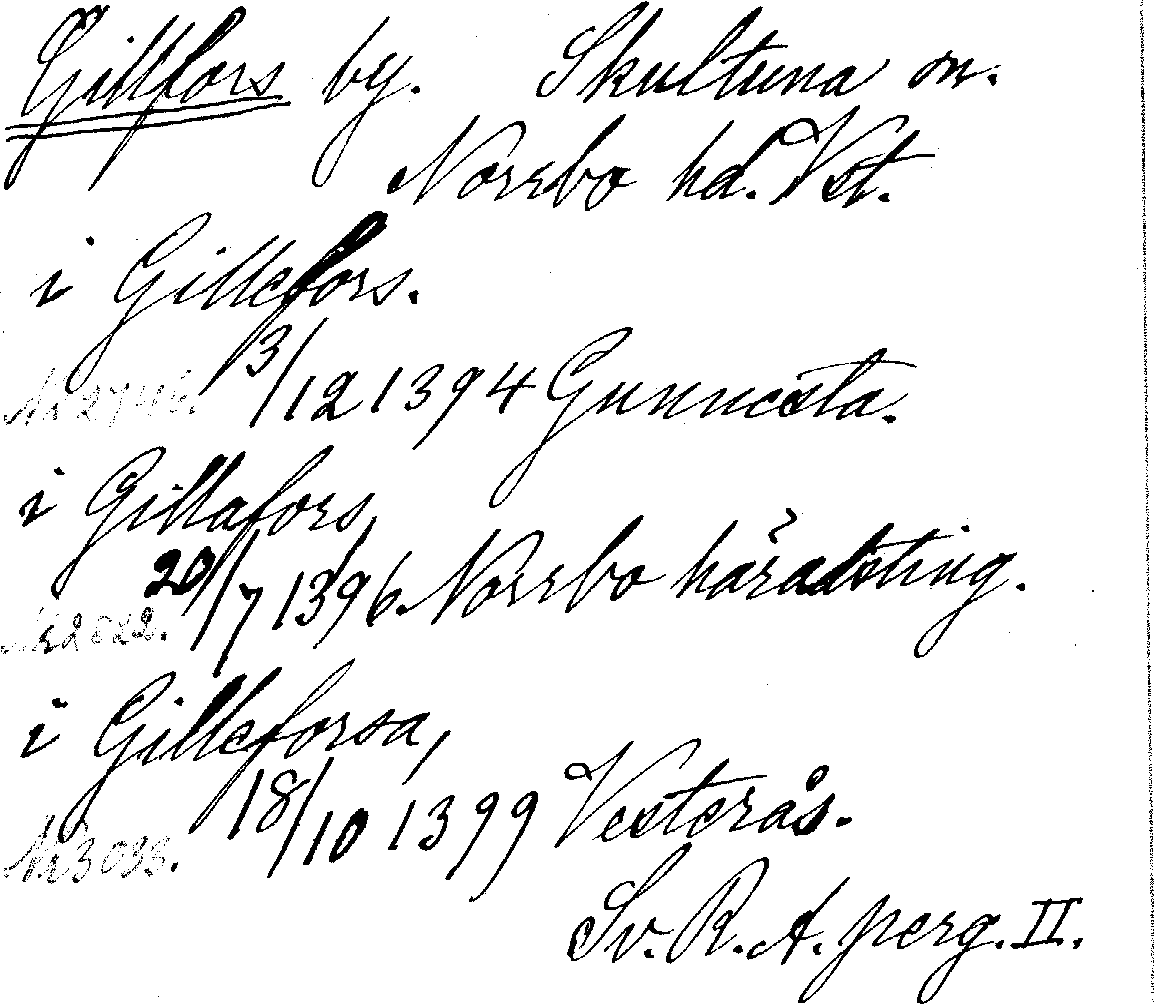 Gillfors by. Skultuna sn.
Norrbo hd. Vst.
i Gillefors.
Nr 2746. 13/12 1394 Gunnesta.
i Gillafors,
20/7 1396. Norrbo häradsting.
Nr 2822.
i Gilleforsa,
18/10 1399 Vesterås.
Nr 3033.
Sv. R. A. perg. II.